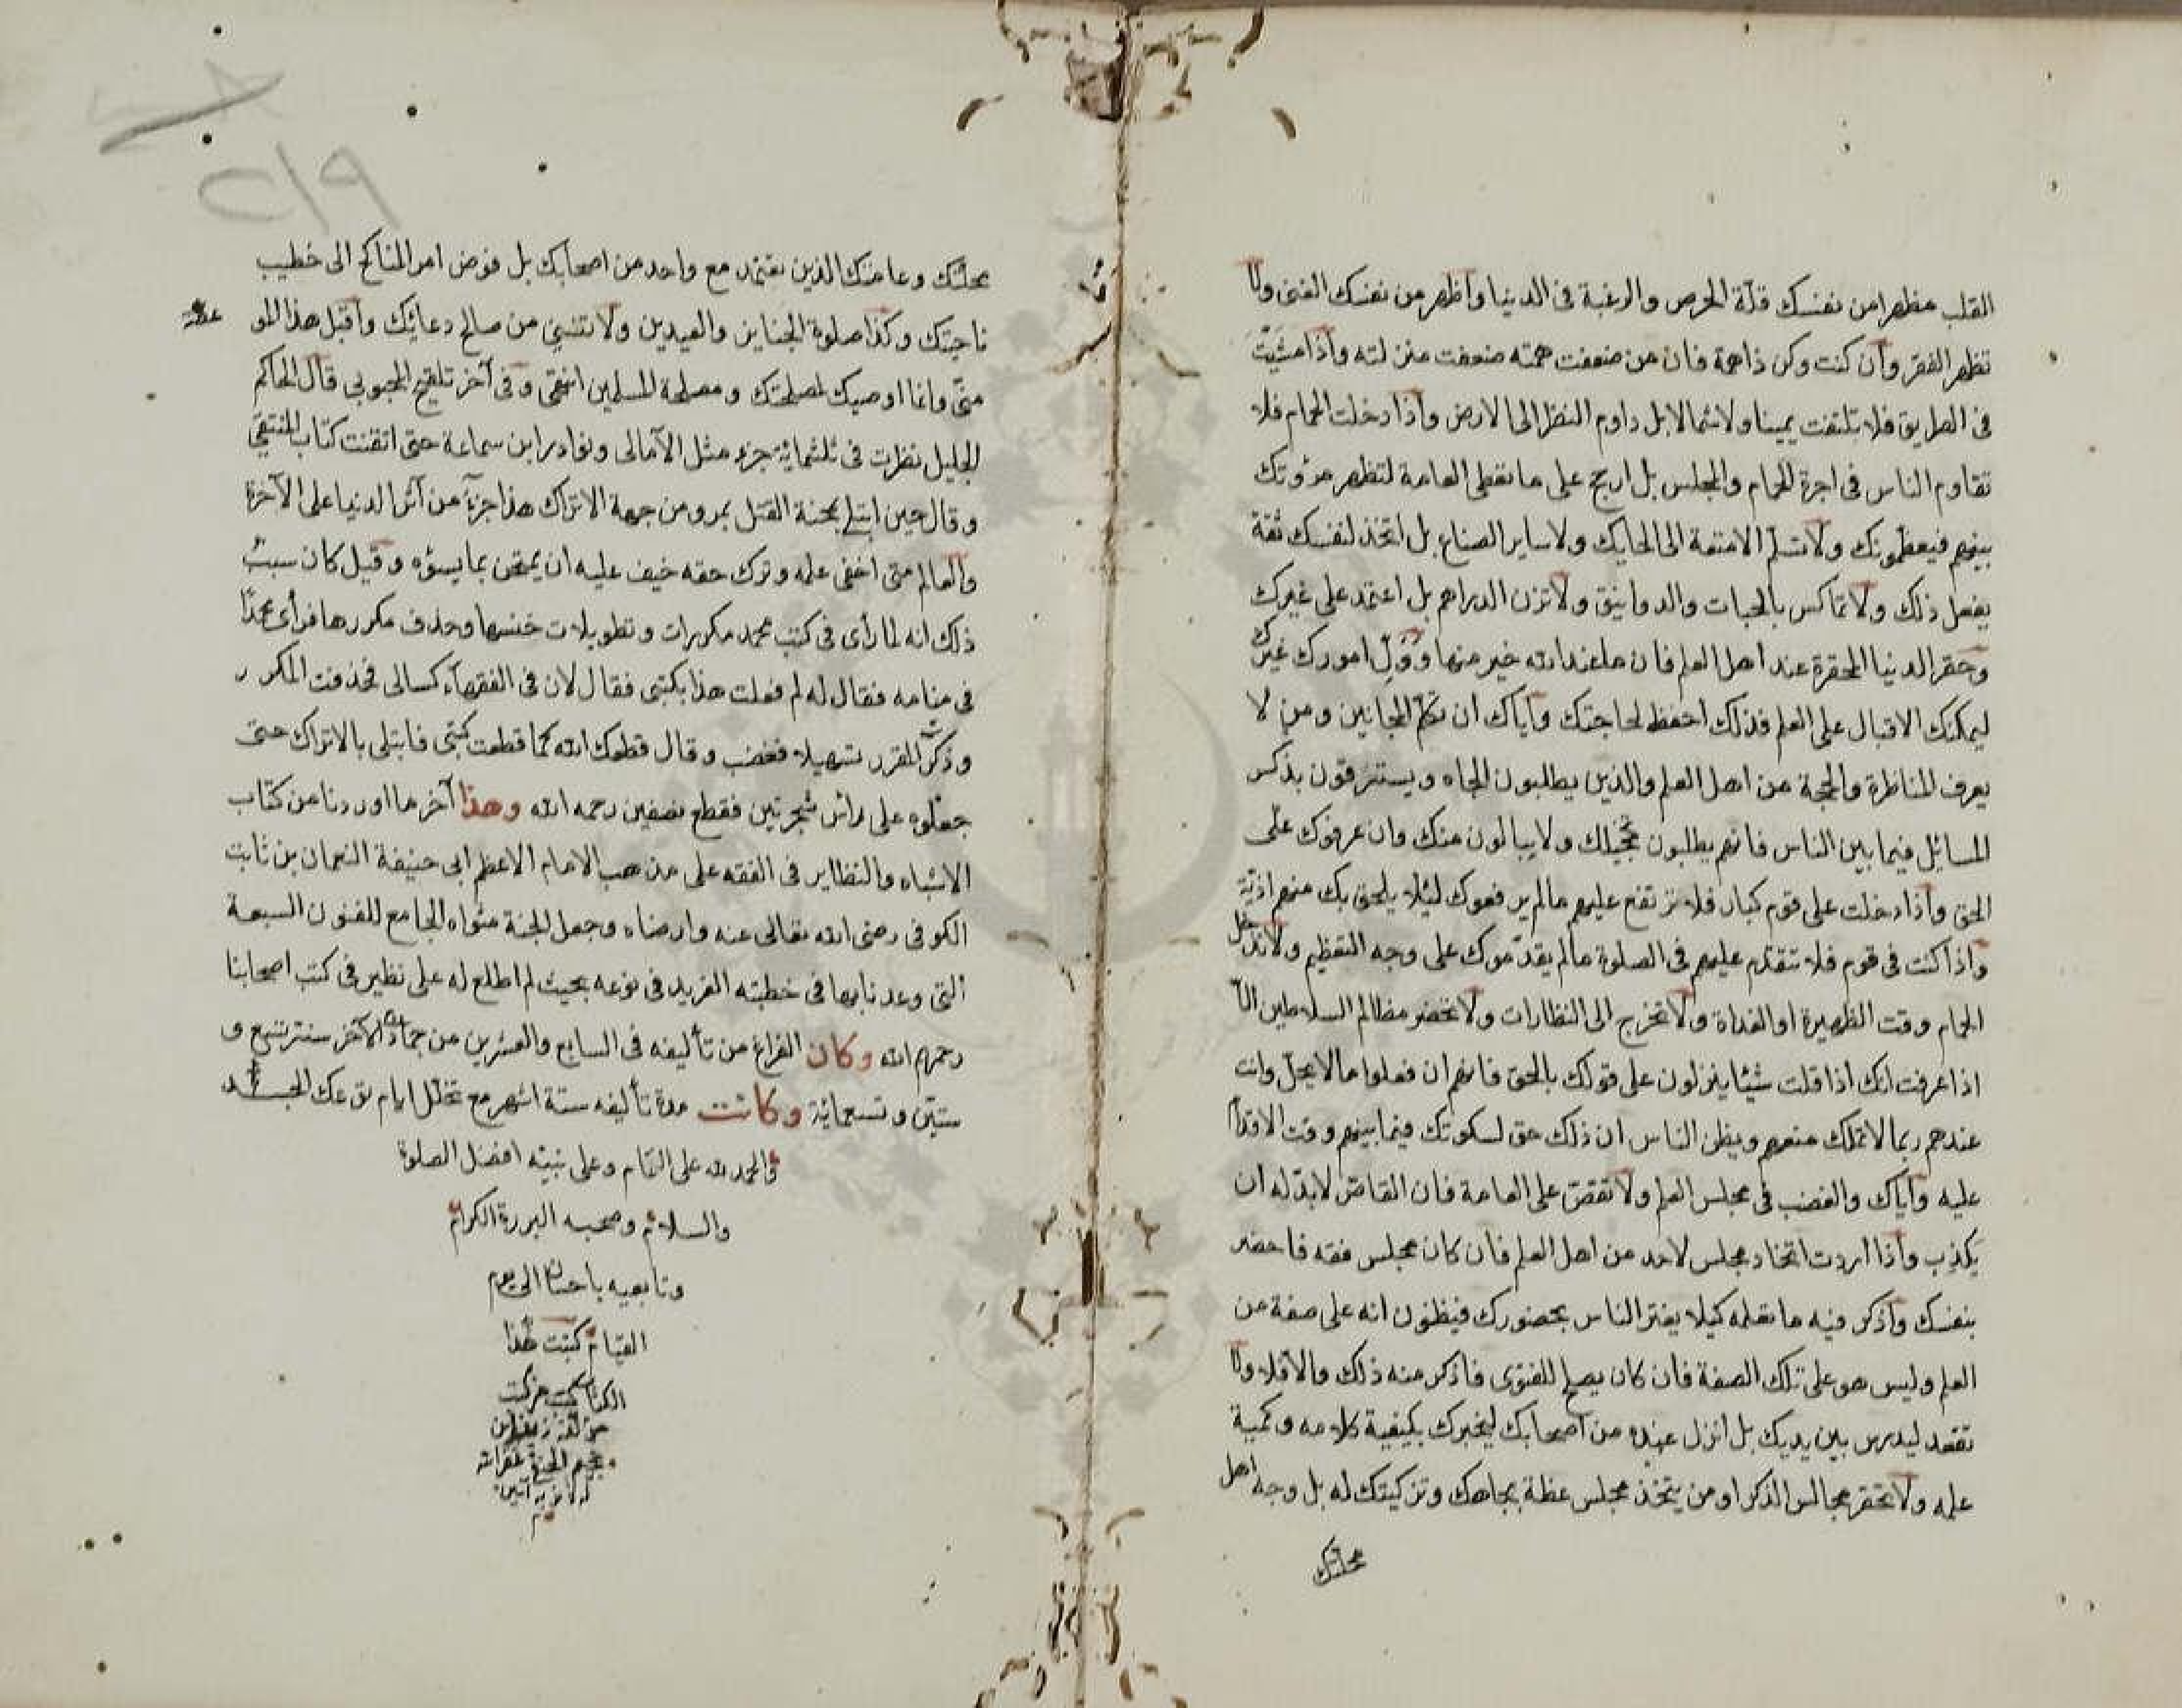 القلب مظهرا من نفسك قلة الحرص والرغبة فى الدنيا واظهر من نفسك الغنى ولا
تظهر الفقر وان كنت وكن ذا همة فان من ضعفت همته ضعفت منزلته واذا مشيت
فى الطريق فلا تلتفت يمينا ولا شمالا بل داوم النظر الى الارض واذا دخلت الحمام فلا
تقاوم الناس فى اجرة الحمام والمجلس بل ارجح على ما تعطى العامة لتظهر مروتك
بينهم فيعظمونك ولا تسلم الامتعة الى الحايك ولا ساير الصناع بل اتخذ لنفسك ثقة
يفعل ذلك ولا تماكس بالحبات والدوانيق ولا تزن الدراهم بل اعتمد على غيرك
وحقر الدنيا المحقرة عند اهل العلم فان ما عند الله خير منها وول امورك غيرك
ليمكنك الاقبال على العلم فذلك احفظ لحاجتك واياك ان تكلم المجانين ومن لا
يعرف المناظرة والحجة من اهل العلم والذين يطلبون الجاه ويستغرقون بذكر
المسائل فيما بين الناس فانهم يطلبون تخجيلك ولا يبالون منك وان عرفوك على
الحق واذا دخلت على قوم كبار فلا ترتفع عليهم ما لم يرفعوك لئلا يلحق بك منهم اذية
واذا كنت فى قوم فلا تتقدم عليهم فى الصلوة ما لم يقدموك على وجه التعظيم ولا تدخل
الحمام وقت الظهيرة او الغداة ولا تخرج الى النظارات ولا تحضر مظالم السلاطين الا
اذا عرفت انك اذا قلت شيئا ينزلون على قولك بالحق فانهم ان فعلوا ما لا يحل وانت
عندهم ربما لا تملك منعهم ويظن الناس ان ذلك حق لسكوتك فيما بينهم وقت الاقدام
عليه واياك والغضب فى مجلس العلم ولا تقص على العامة فان القاص لا بد له ان
يكذب واذا اردت اتخاذ مجلس لاحد من اهل العلم فان كان مجلس فقه فاحضر
بنفسك واذكر فيه ما تعلمه كيلا يغتر الناس بحضورك فيظنون انه على صفة من
العلم وليس هو على تلك الصفة فان كان يصلح للفتوى فاذكر منه ذلك والا فلا ولا
تقعد ليدرس بين يديك بل انزل عنده من اصحابك ليخبرك بكيفية كلامه وكمية
علمه ولا تحقر مجالس الذكر او من يتخذ مجلس عظة بجاهك وتزكيتك له بل وجه اهل
محلتك
محلتك وعامتك الذين تعتمد مع واحد من اصحابك بل فوض امر المناكح الى خطيب
ناحيتك وكذا صلوة الجنايز والعيدين ولا تنسنى من صالح دعائك واقبل هذا المو
عظة
منى وانما اوصيك لمصلحتك ومصلحة المسلمين انتهى وفى آخر تلقيح المحبوبى قال الحاكم
الجليل نظرت فى ثلثمائة جزء مثل الآمالى ونوادر ابن سماعة حتى اتقنت كتاب المنتقى
وقال حين ابتلى بمحنة القتل بمرو من جهة الاتراك هذا جزآء من آثر الدنيا على الآخرة
والعالم متى اخفى علمه وترك حقه خيف عليه ان يمتحن بما يسوؤه وقيل كان سبب
ذلك انه لما رأى فى كتب محمد مكررات وتطويلات خنسها وحذف مكررها فرأى محمدا
فى منامه فقال له لم فعلت هذا بكتبى فقال لان فى الفقهآء كسالى فحذفت المكرر
وذكرت المقرر تسهيلا فغضب وقال قطعك الله كما قطعت كتبى فابتلى بالاتراك حتى
جعلوه على رأس شجرتين فقطع نصفين رحمه الله وهذا آخر ما اوردنا من كتاب
الاشباه والنظاير فى الفقه على مذهب الامام الاعظم ابى حنيفة النعمان بن ثابت
الكوفى رضى الله تعالى عنه وارضاه وجعل الجنة مثواه الجامع للفنون السبعة
التى وعدنا بها فى خطبته الفريد فى نوعه بحيث لم اطلع له على نظير فى كتب اصحابنا
رحمهم الله وكان الفراغ من تأليفه فى السابع والعشرين من جمادى الآخر سنة تسع و
ستين وتسعمائة وكانت مدة تأليفه ستة اشهر مع تخلل ايام توعك الجسد
والحمد لله على التمام وعلى نبيه افضل الصلوة
والسلام وصحبه البررة الكرام
وتابعيه باحسان الى يوم
القيام كتبت هذا
الكتاب
٢١٩